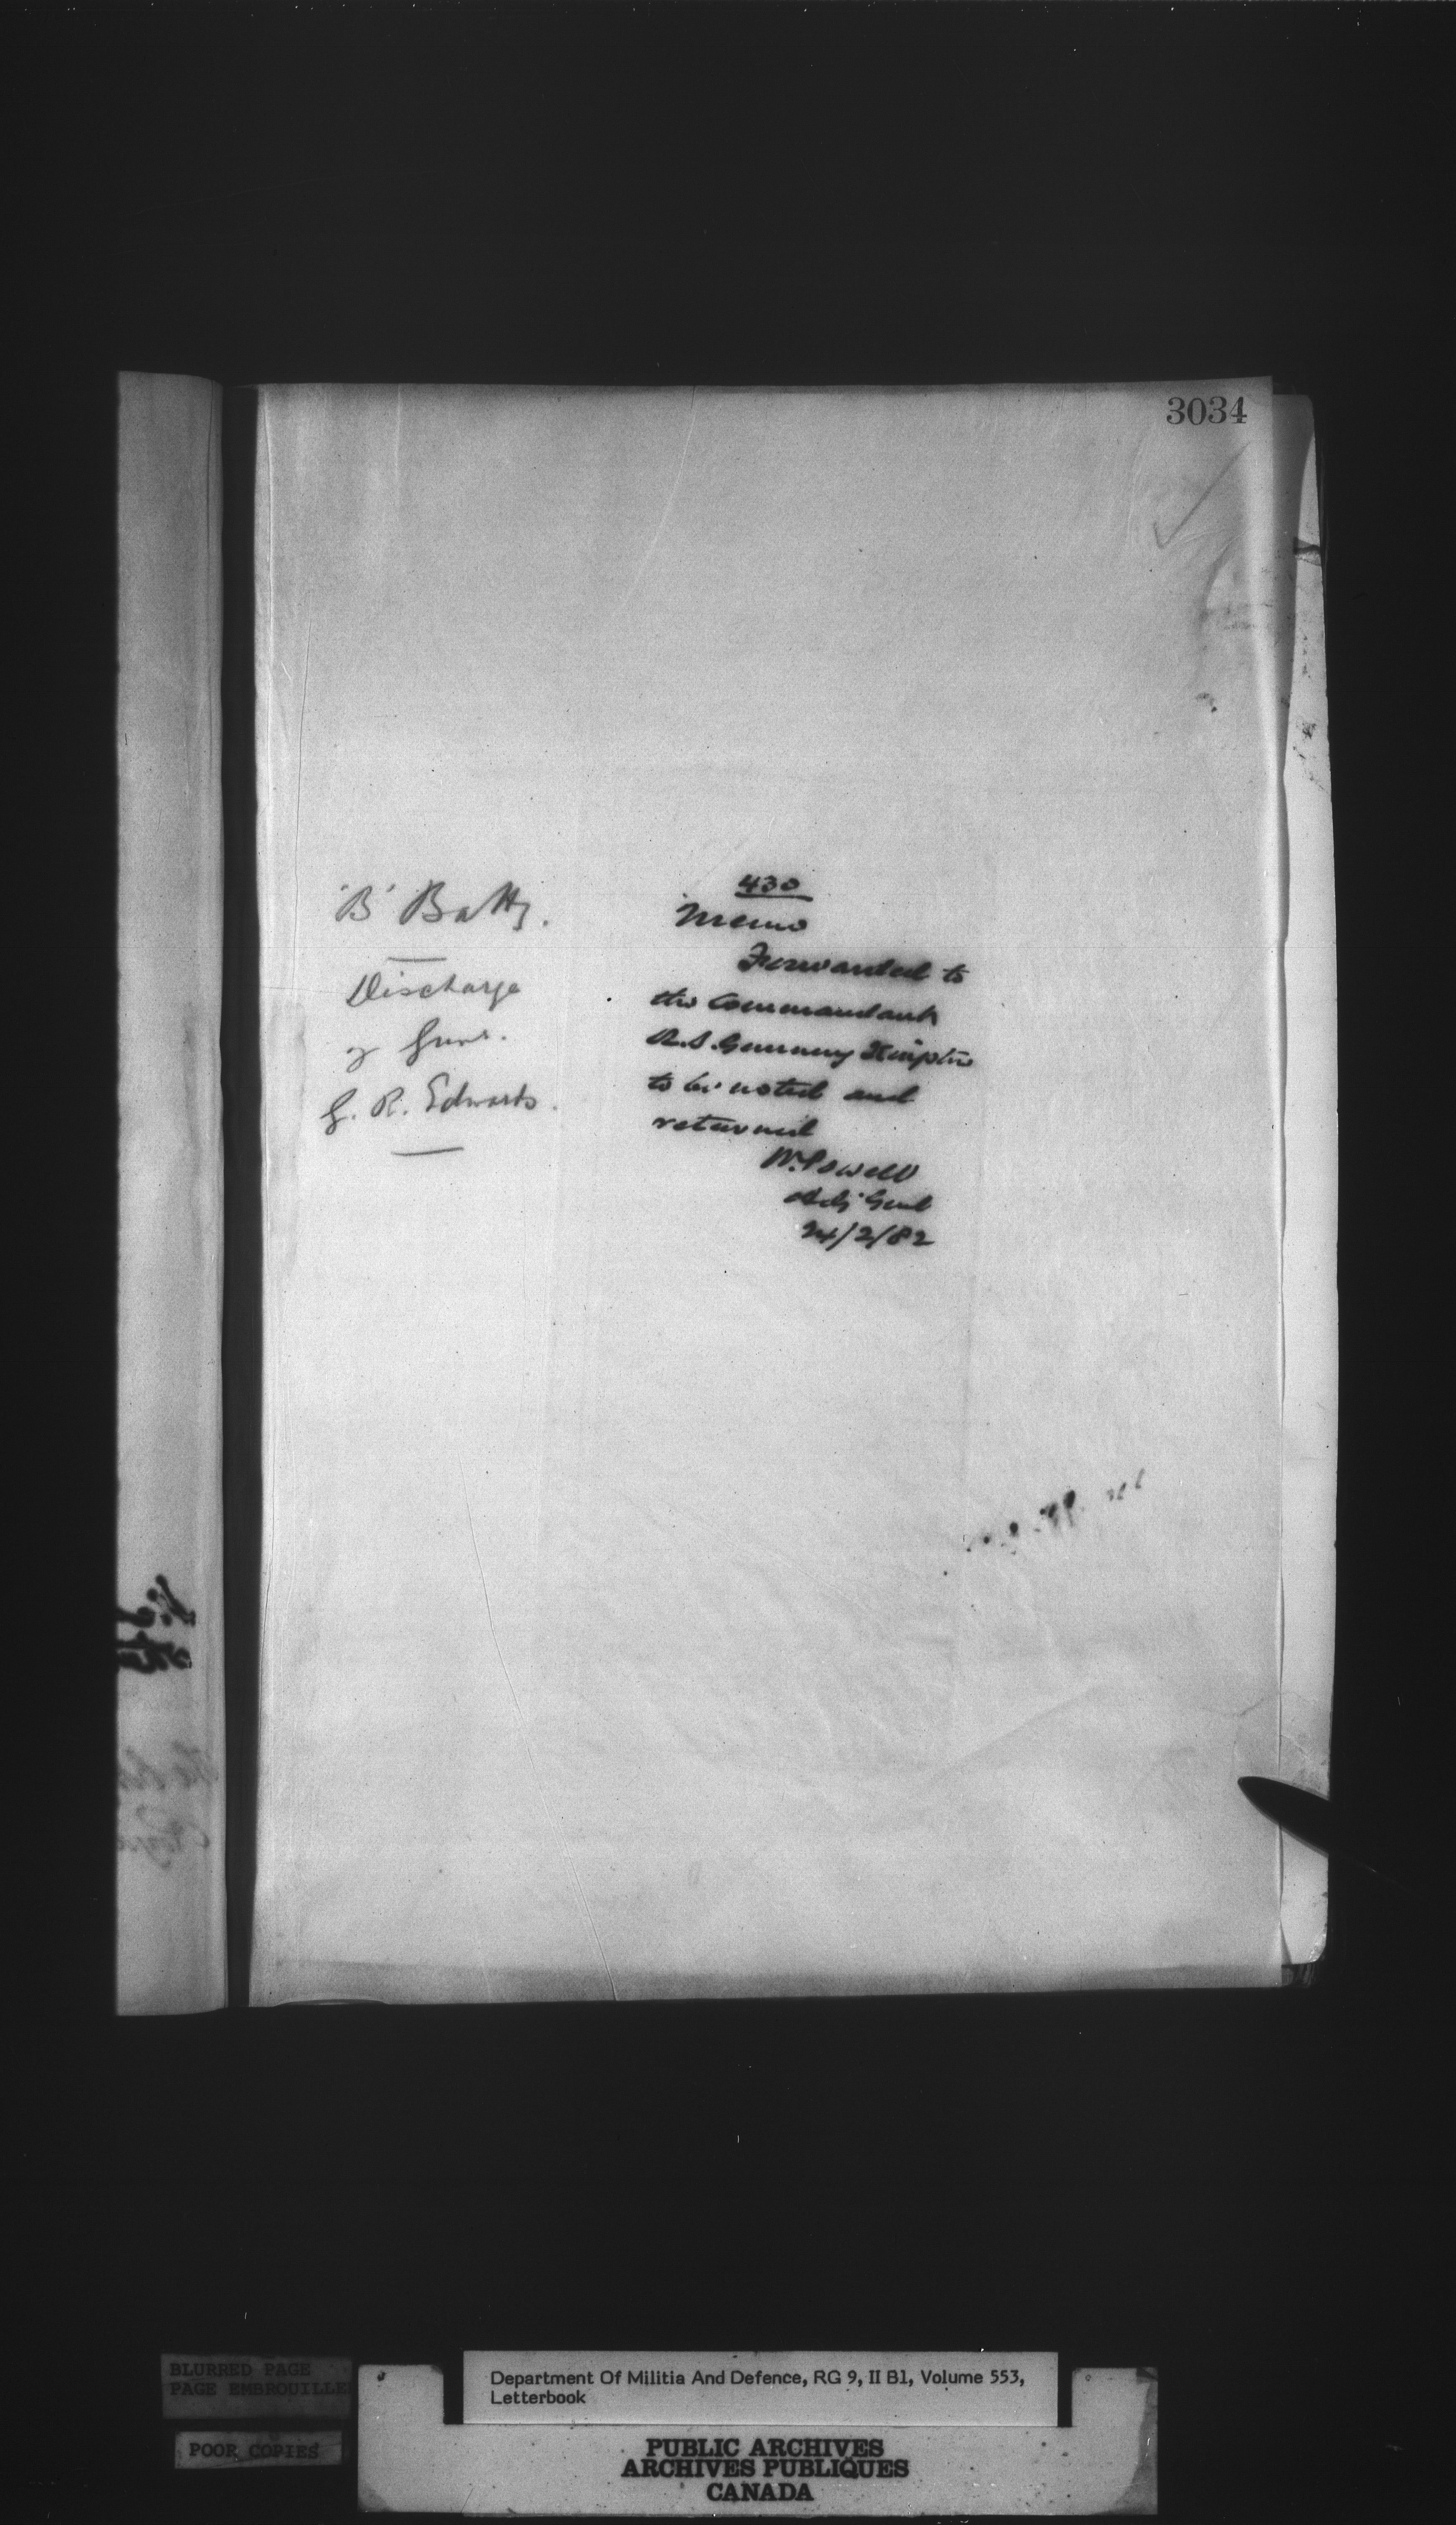 3034
'B' Batty.
Discharge
of Gunr.
G. R. Edwards.
430
Memo
Forwarded to
the Commandant
R.S. Gunnery Kingston
to be noted and
returned
W. Powell
Adj Genl
24/2/82
BLURRED PAGE
PAGE EMBROUILLE
POOR COPIES
Department Of Militia And Defence, RG 9, II B1, Volume 553,
Letterbook
PUBLIC ARCHIVES
ARCHIVES PUBLIQUES
CANADA